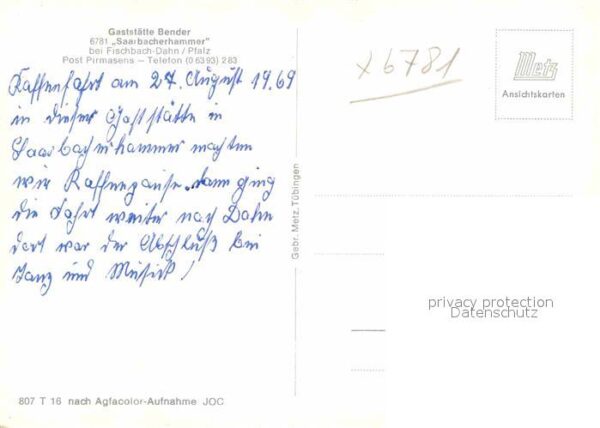 Gaststätte Bender
6781 „Saarbacherhammer"
bei Fischbach-Dahn / Pfalz
Post Pirmasens — Telefon (0 63 93) 283
Kaffeefahrt am 27. August 1969
in dieser Gaststätte in
Saarbacherhammer machten
wir Kaffeepause. dann ging
die Fahrt weiter nach Dahn
dort war der Abschluß bei
Tanz und Musick!
x6781
Metz
Ansichtskarten
Gebr. Metz, Tübingen
privacy protection
Datenschutz
807 T 16 nach Agfacolor-Aufnahme JOC